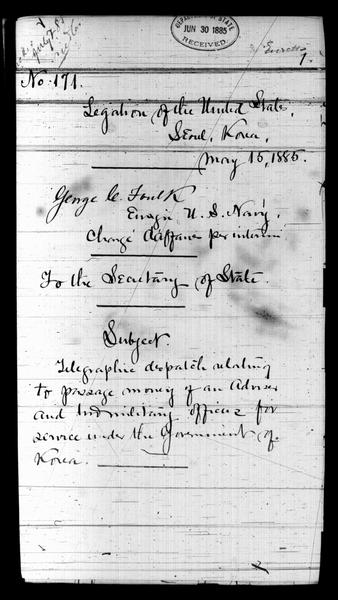 DEPARTMENT OF STATE
JUN 30 1885
RECEIVED.
1.
No. 171.
Legation of the United States,
Seoul, Korea,
May 15, 1885.
George C. Foulk
Ensign U. S. Navy,
Chargé d'Affaires per interim
To the Secretary of State.
Subject.
Telegraphic despatch relating
to passage money of an Adviser
and military officers for
service under the Government of
Korea.